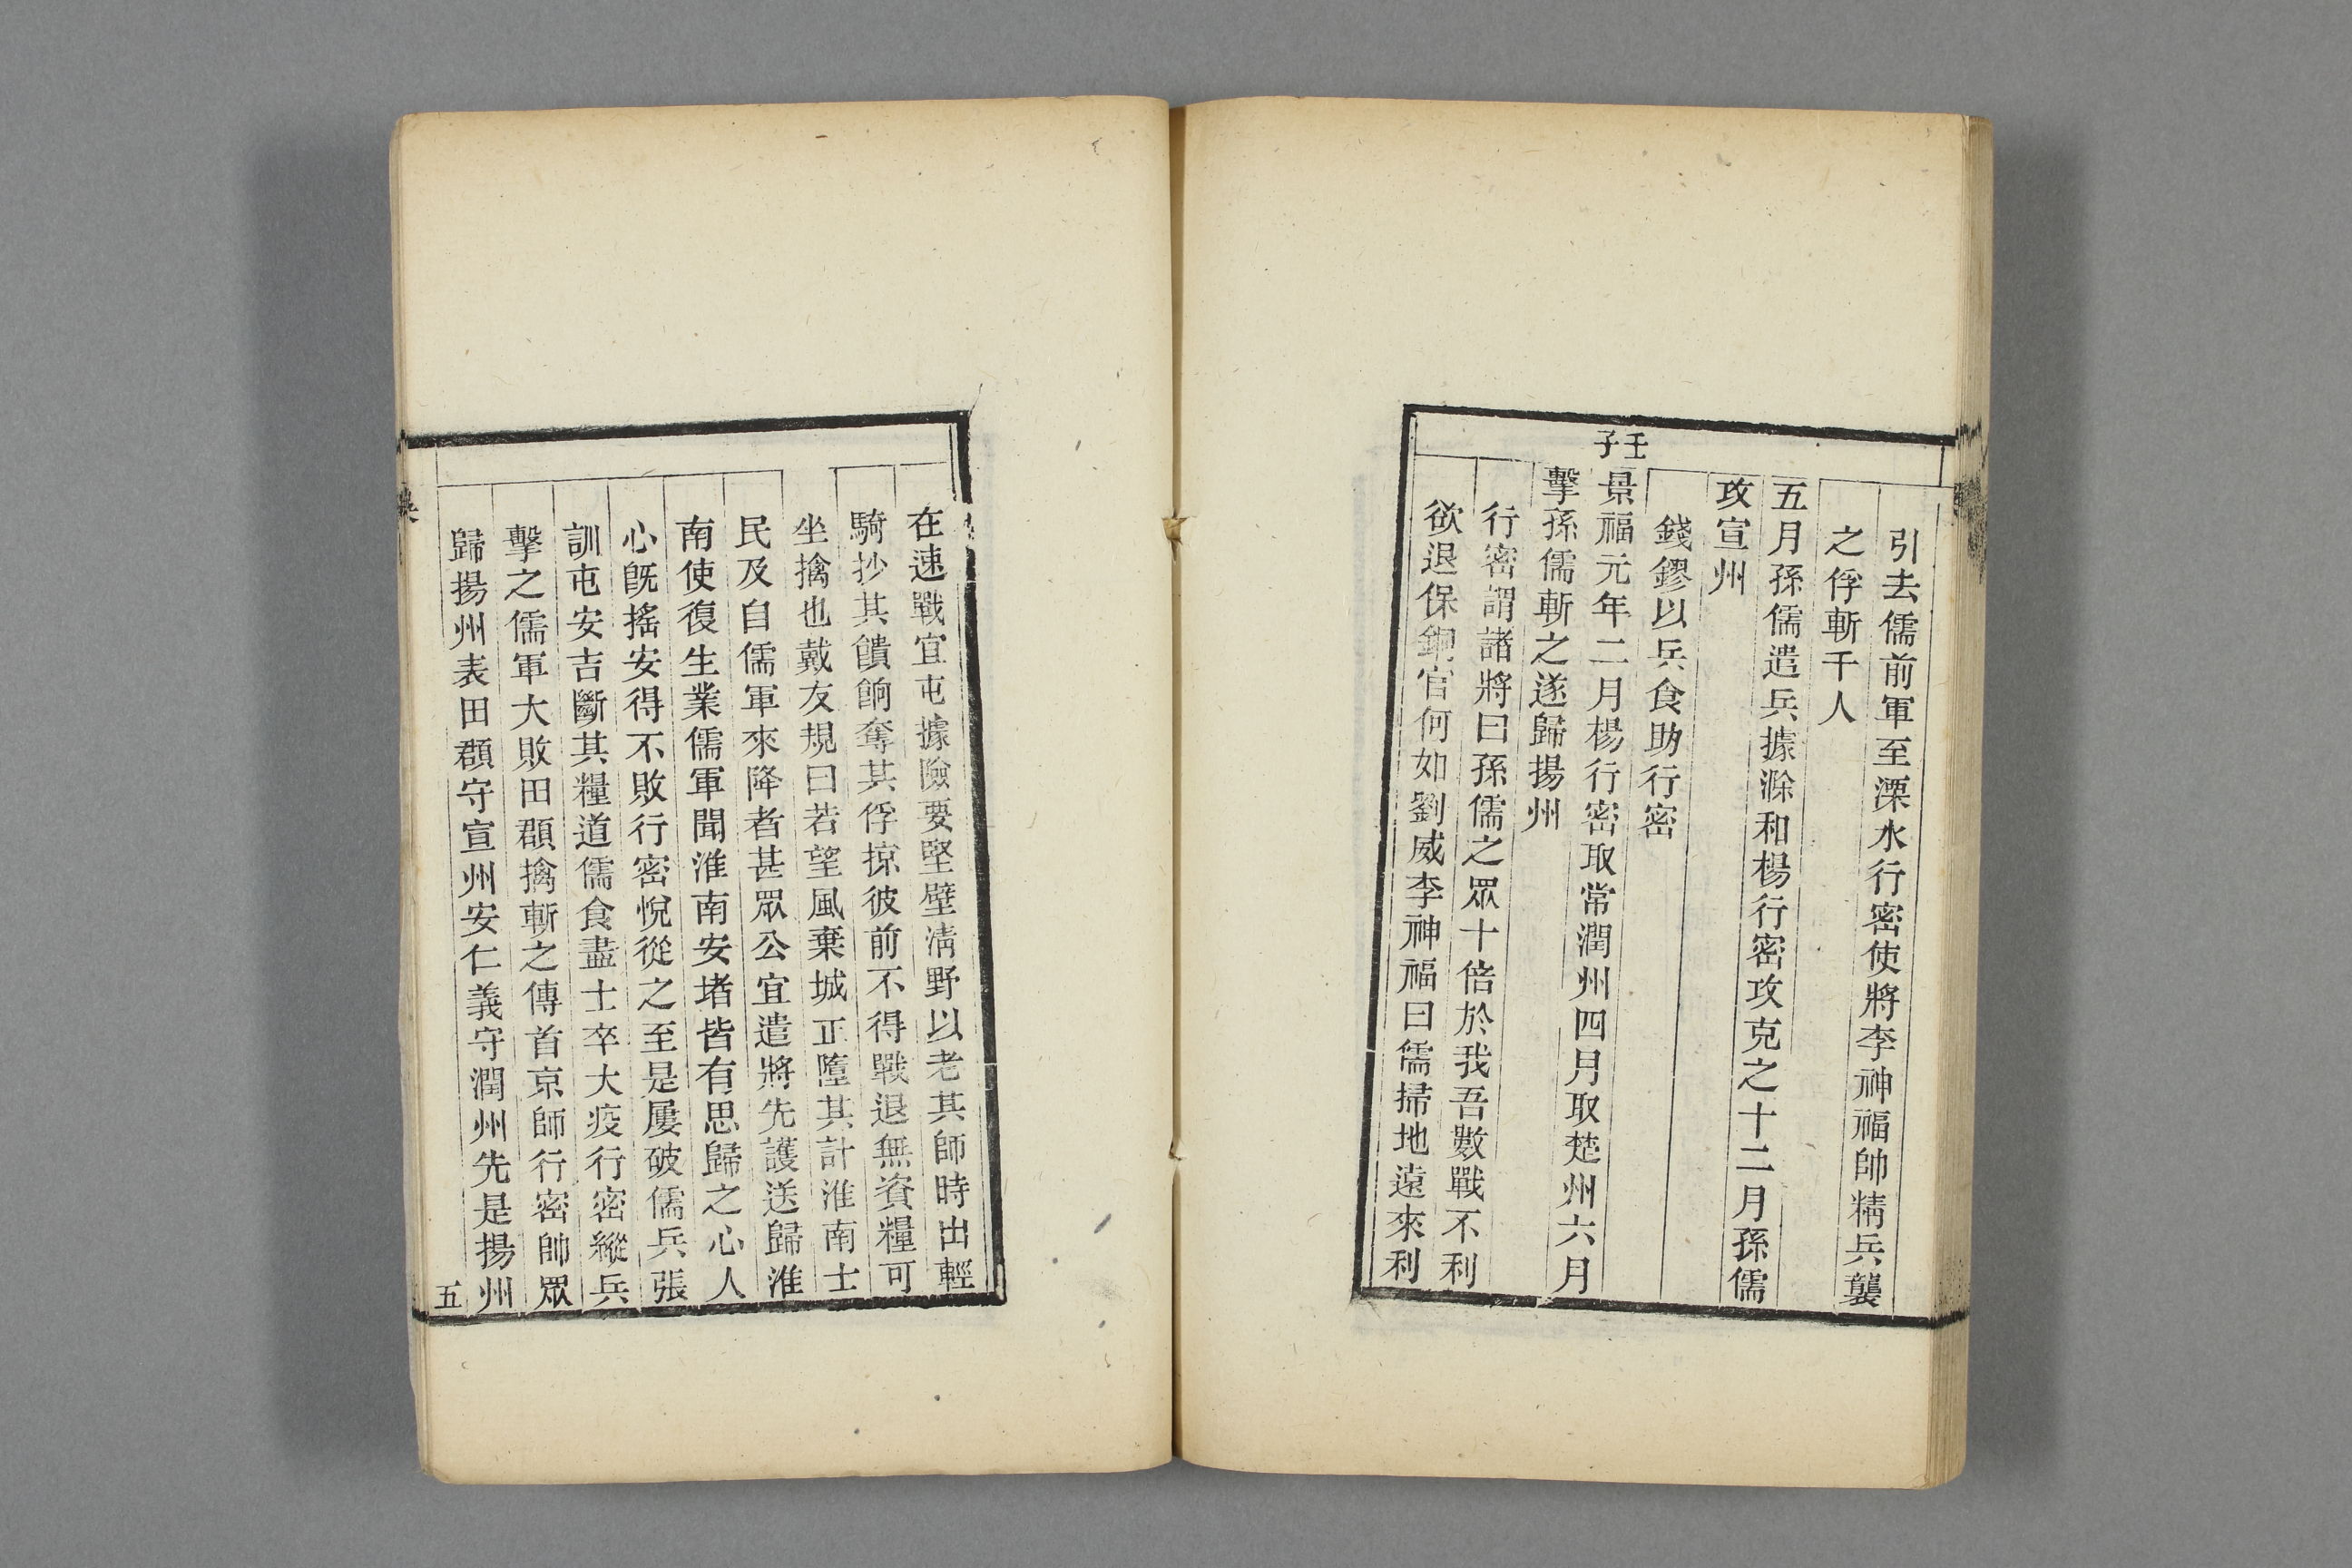 引去儒前軍至溧水行密使將李神福帥精兵襲
之俘斬千人
五月孫儒遣兵據滁和楊行密攻克之十二月孫儒
攻宣州
錢鏐以兵食助行密
壬子
景福元年二月楊行密取常潤州四月取楚州六月
擊孫儒斬之遂歸揚州
行密謂諸將曰孫儒之眾十倍於我吾數戰不利
欲退保銅官何如劉威李神福曰儒掃地遠來利
在速戰宜屯據險要堅壁清野以老其師時出輕
騎抄其饋餉奪其俘掠彼前不得戰退無資糧可
坐擒也戴友規曰若望風棄城正墮其計淮南士
民及自儒軍來降者甚眾公宜遣將先護送歸淮
南使復生業儒軍聞淮南安堵皆有思歸之心人
心既搖安得不敗行密悅從之至是屢破儒兵張
訓屯安吉斷其糧道儒食盡士卒大疫行密縱兵
擊之儒軍大敗田頵擒斬之傳首京師行密帥眾
歸揚州表田頵守宣州安仁義守潤州先是揚州
五